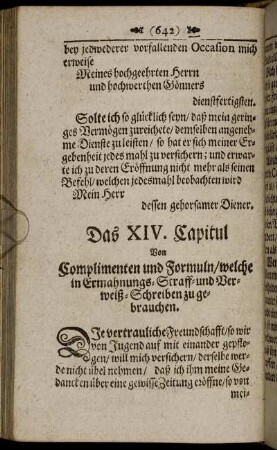 (642)
bey jedwederer vorfallenden Occasion mich
erweise
Meines hochgeehrten Herrn
und hochwerthen Gönners
dienstfertigsten.
Solte ich so glücklich seyn / daß mein gerin-
ges Vermögen zureichete / demselben angeneh-
me Dienste zu leisten / so hat er sich meiner Er-
gebenheit jedes mahl zu versichern; und erwar-
te ich zu deren Eröffnung nicht mehr als seinen
Befehl / welchen jedesmahl beobachten wird
Mein Herr
dessen gehorsamer Diener.
Das XIV. Capitul
Von
Complimenten und Formuln / welche
in Ermahnungs- Straff- und Ver-
weiß- Schreiben zu ge-
brauchen.
DJe vertrauliche Freundschafft / so wir
von Jugend auf mit einander gepflo-
gen / will mich versichern / derselbe wer-
de nicht übel nehmen / daß ich ihm meine Ge-
dancken über eine gewisse Zeitung eröffne / so von
mei-